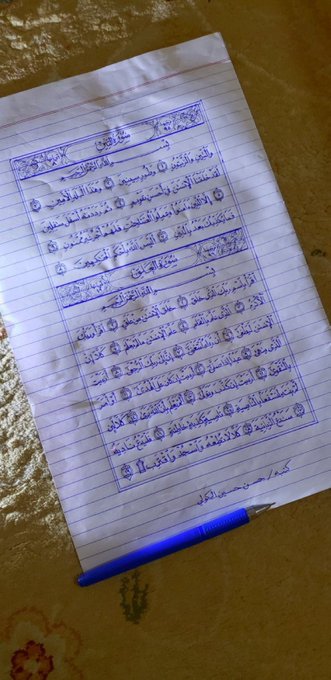 سُورَةُ التِّينِ
بِسْمِ اللَّهِ الرَّحْمَٰنِ الرَّحِيمِ
وَالتِّينِ وَالزَّيْتُونِ ١ وَطُورِ سِينِينَ ٢ وَهَٰذَا الْبَلَدِ الْأَمِينِ ٣
لَقَدْ خَلَقْنَا الْإِنسَٰنَ فِي أَحْسَنِ تَقْوِيمٍ ٤ ثُمَّ رَدَدْنَٰهُ أَسْفَلَ سَٰفِلِينَ ٥
إِلَّا الَّذِينَ ءَامَنُوا وَعَمِلُوا الصَّٰلِحَٰتِ فَلَهُمْ أَجْرٌ غَيْرُ مَمْنُونٍ ٦
فَمَا يُكَذِّبُكَ بَعْدُ بِالدِّينِ ٧ أَلَيْسَ اللَّهُ بِأَحْكَمِ الْحَٰكِمِينَ ٨
سُورَةُ الْعَلَقِ
بِسْمِ اللَّهِ الرَّحْمَٰنِ الرَّحِيمِ
اقْرَأْ بِاسْمِ رَبِّكَ الَّذِي خَلَقَ ١ خَلَقَ الْإِنسَٰنَ مِنْ عَلَقٍ ٢ اقْرَأْ وَرَبُّكَ
الْأَكْرَمُ ٣ الَّذِي عَلَّمَ بِالْقَلَمِ ٤ عَلَّمَ الْإِنسَٰنَ مَا لَمْ يَعْلَمْ ٥ كَلَّا إِنَّ
الْإِنسَٰنَ لَيَطْغَىٰ ٦ أَن رَّءَاهُ اسْتَغْنَىٰ ٧ إِنَّ إِلَىٰ رَبِّكَ الرُّجْعَىٰ ٨ أَرَءَيْتَ
الَّذِي يَنْهَىٰ ٩ عَبْدًا إِذَا صَلَّىٰ ١٠ أَرَءَيْتَ إِن كَانَ عَلَى الْهُدَىٰ ١١ أَوْ أَمَرَ
بِالتَّقْوَىٰ ١٢ أَرَءَيْتَ إِن كَذَّبَ وَتَوَلَّىٰ ١٣ أَلَمْ يَعْلَم بِأَنَّ اللَّهَ يَرَىٰ ١٤ كَلَّا لَئِن
لَّمْ يَنتَهِ لَنَسْفَعًا بِالنَّاصِيَةِ ١٥ نَاصِيَةٍ كَٰذِبَةٍ خَاطِئَةٍ ١٦ فَلْيَدْعُ نَادِيَهُ
١٧ سَنَدْعُ الزَّبَانِيَةَ ١٨ كَلَّا لَا تُطِعْهُ وَاسْجُدْ وَاقْتَرِب ١٩
كتبه / حسن حسين